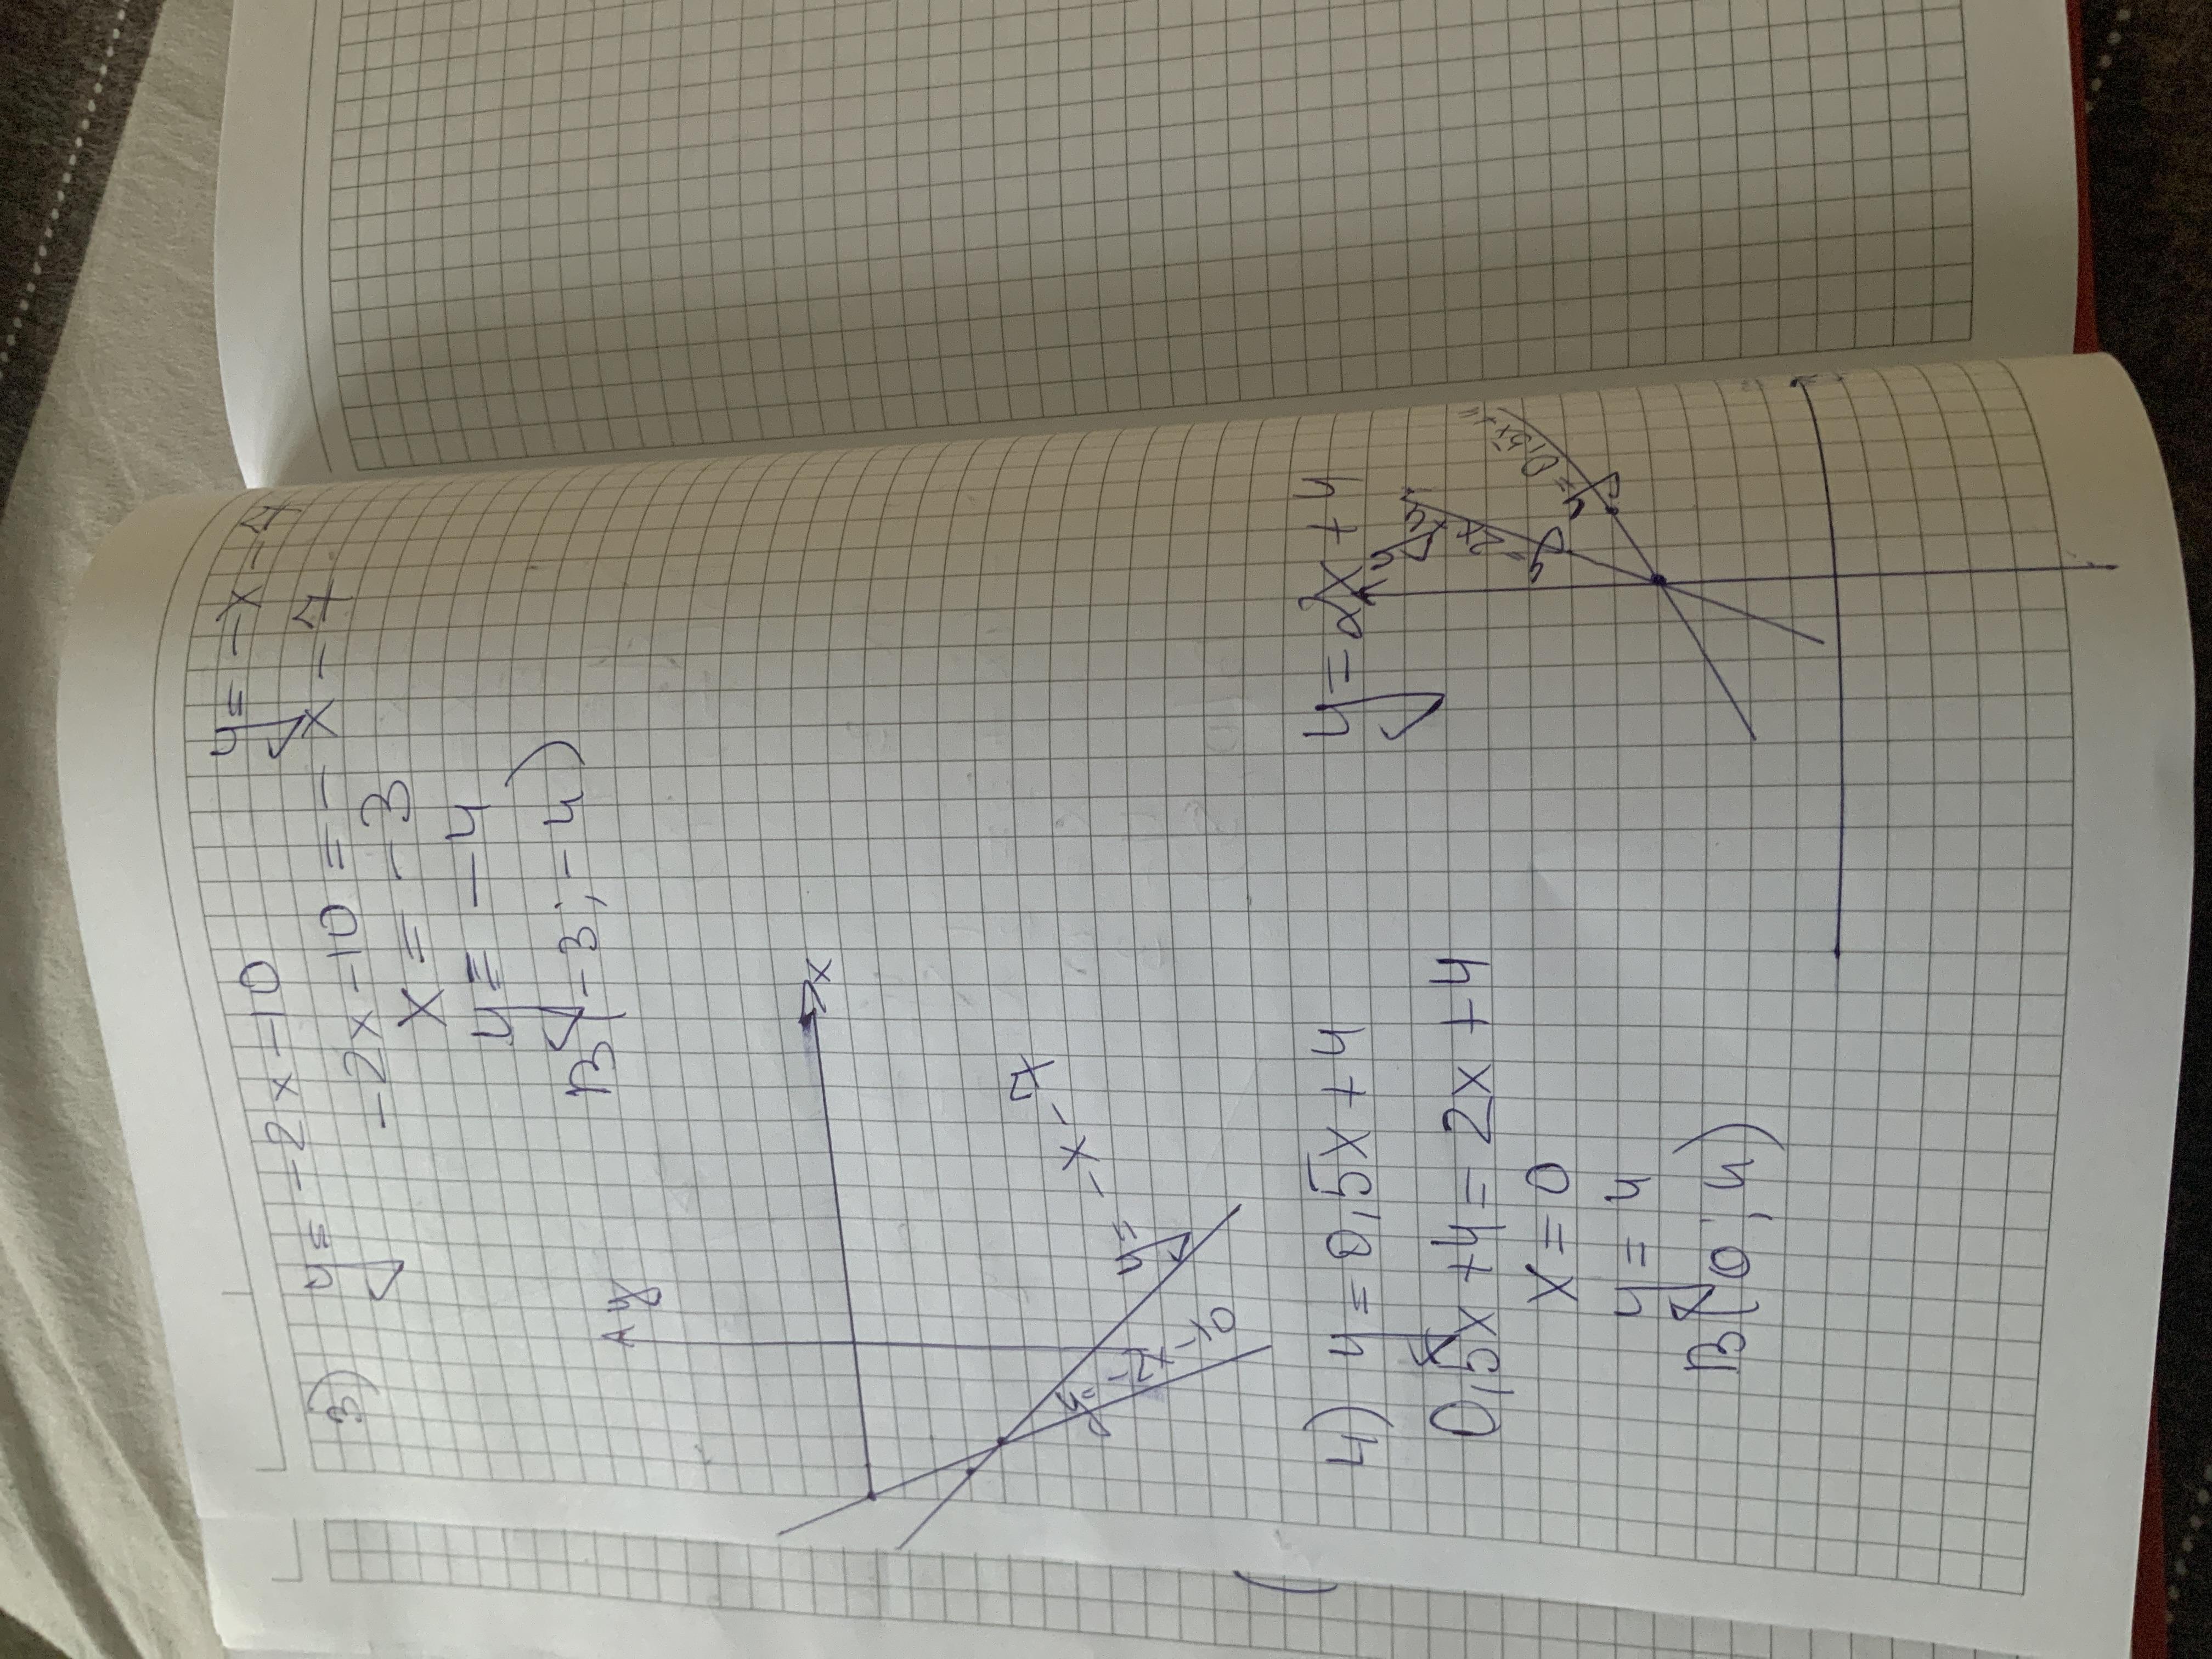 3) y = -2x -10 y = -x -7
-2x -10 = -x -7
x = -3
y = -4
B(-3; -4)
y
x
y = -x -7
y = -2x -10
4) y = 0,5x + 4 y = 2x + 4
0,5x + 4 = 2x + 4
x = 0
y = 4
B(0; 4)
y
y = 2x + 4
y = 0,5x +